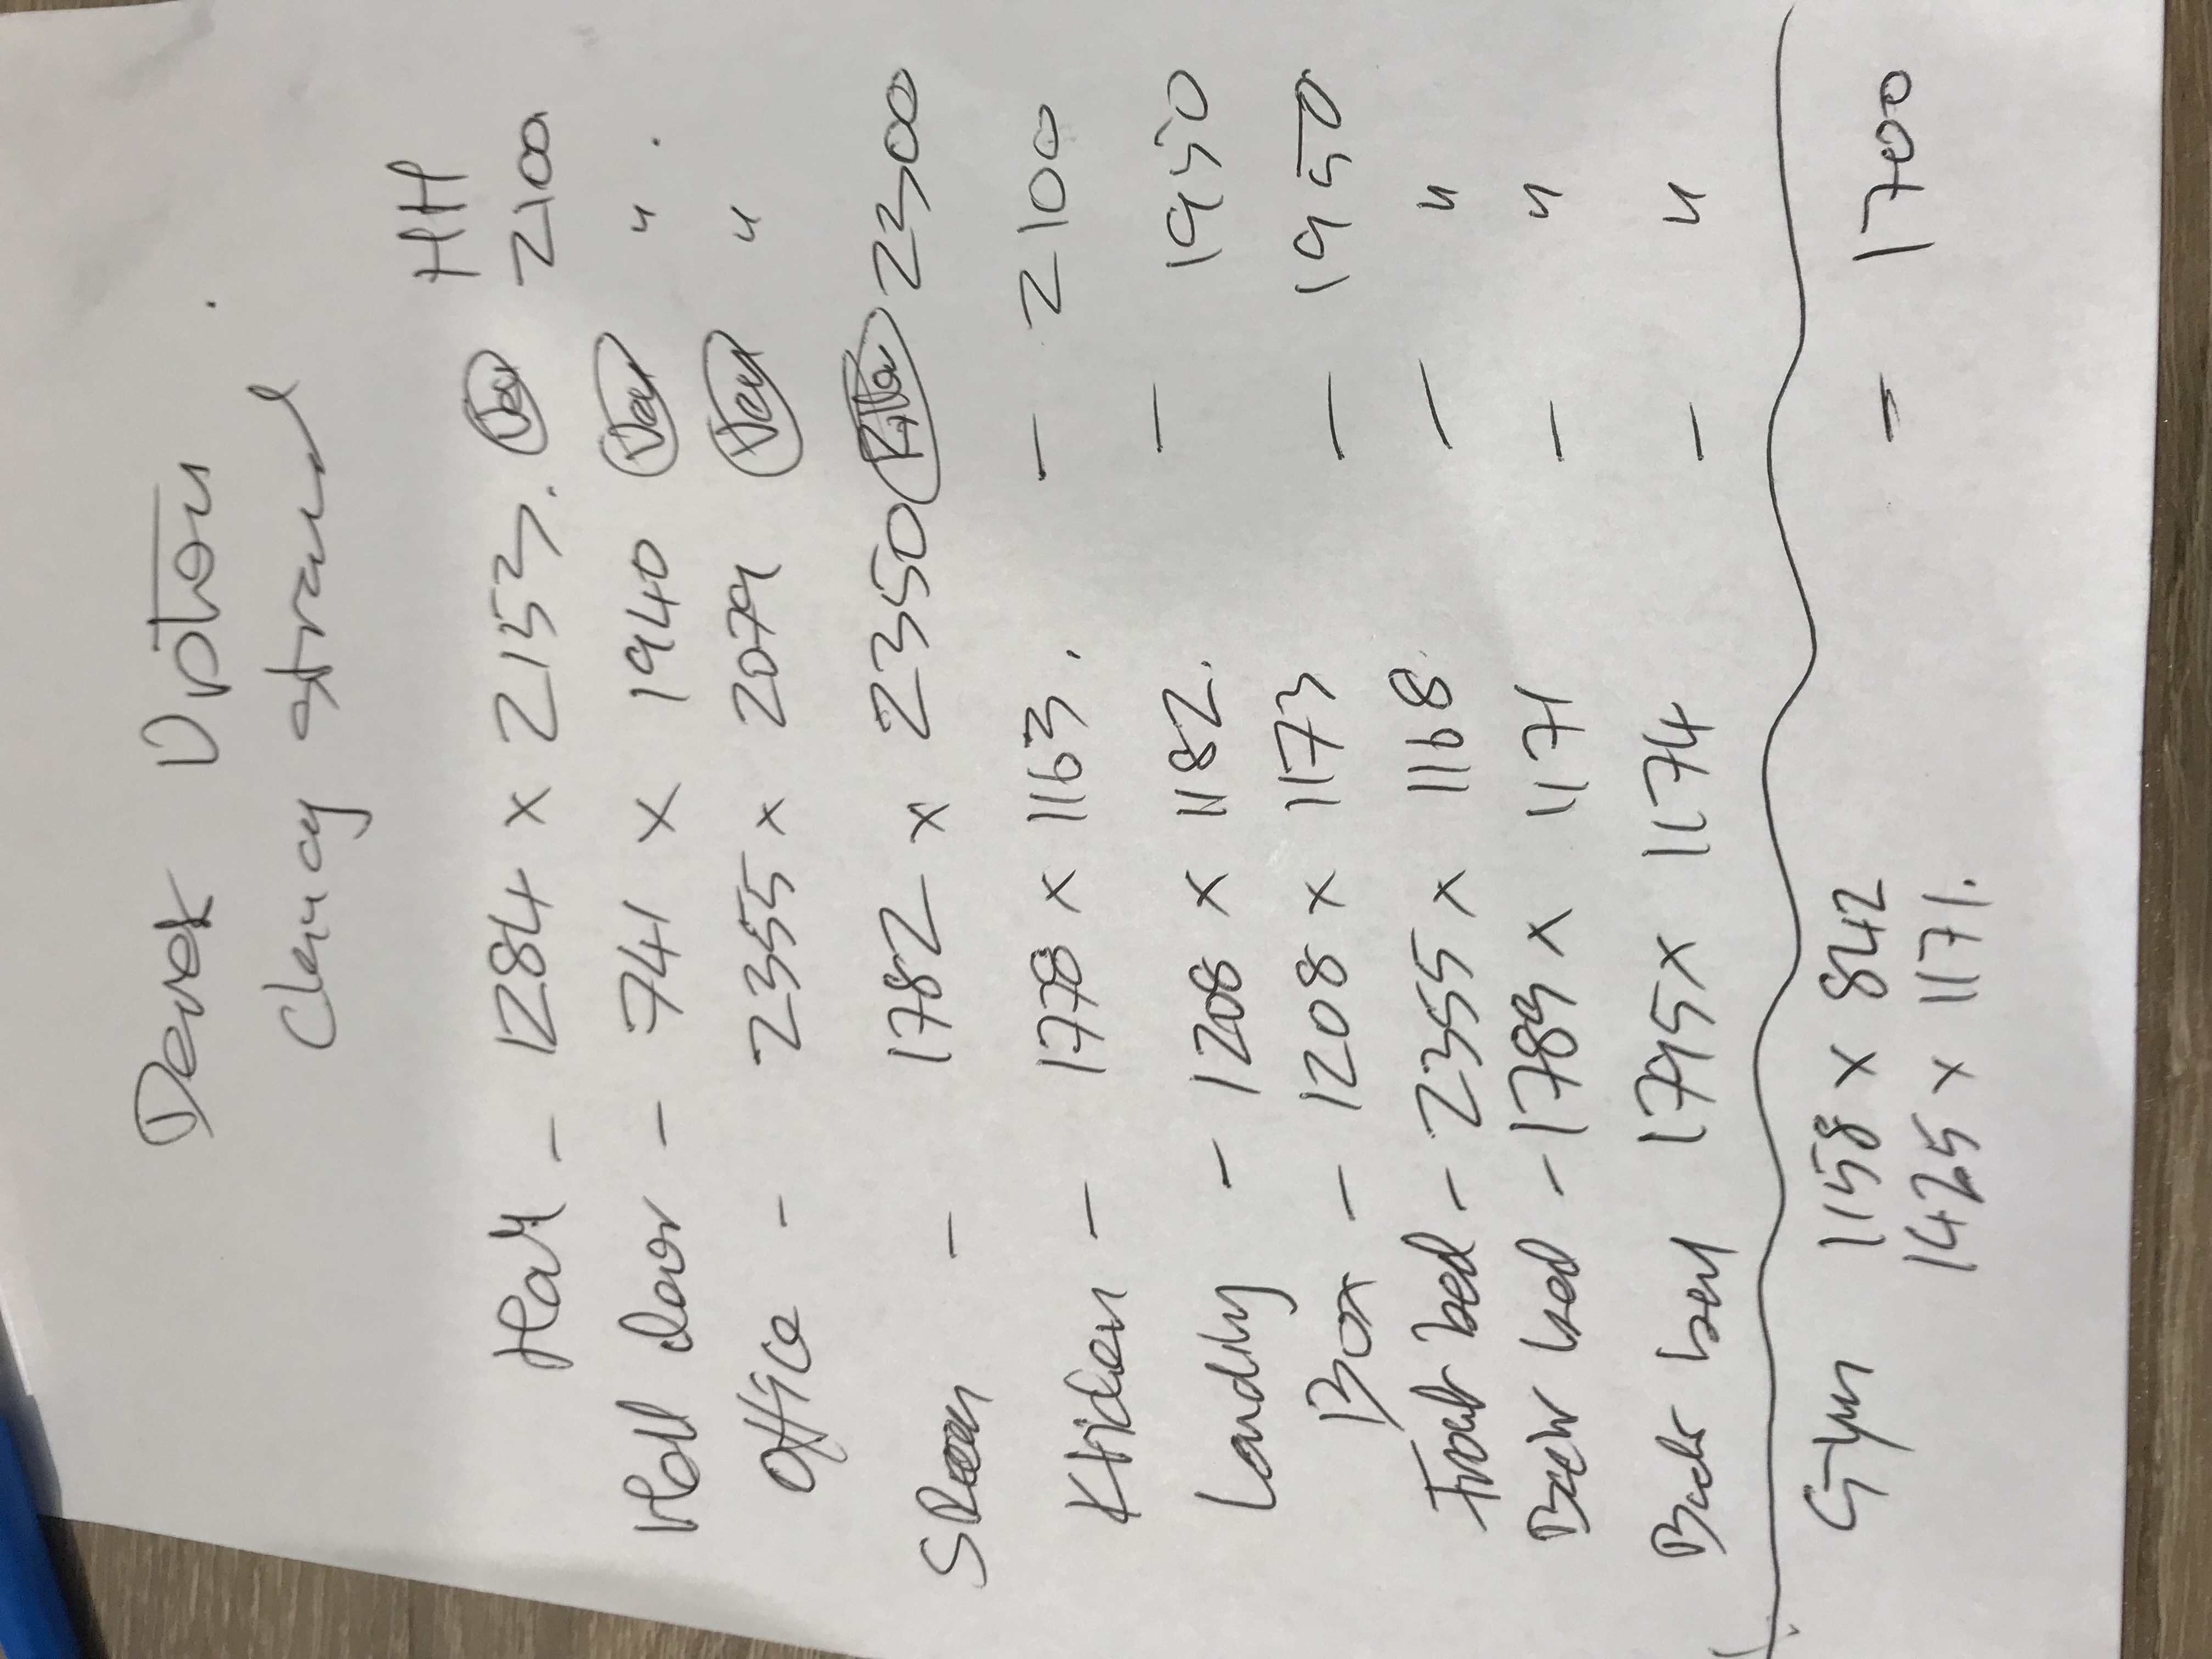 Derek
HH
Hall - 1284 x 2153. 2100
Hall door - 741 x 1940 " .
Office - 2355 x 2079 "
SRoom - 1782 x 2350 2300
Kitchen - 1778 x 1163. - 2100
Landing - 1208 x 1182. - 1950
Box - 1208 x 1173 - 1950
Front bed - 2355 x 1168. - "
Back bed - 1789 x 1171 - "
Back bed 1795 x 1174 - "
Gym 1158 x 842 - 1700
1425 x 1171.